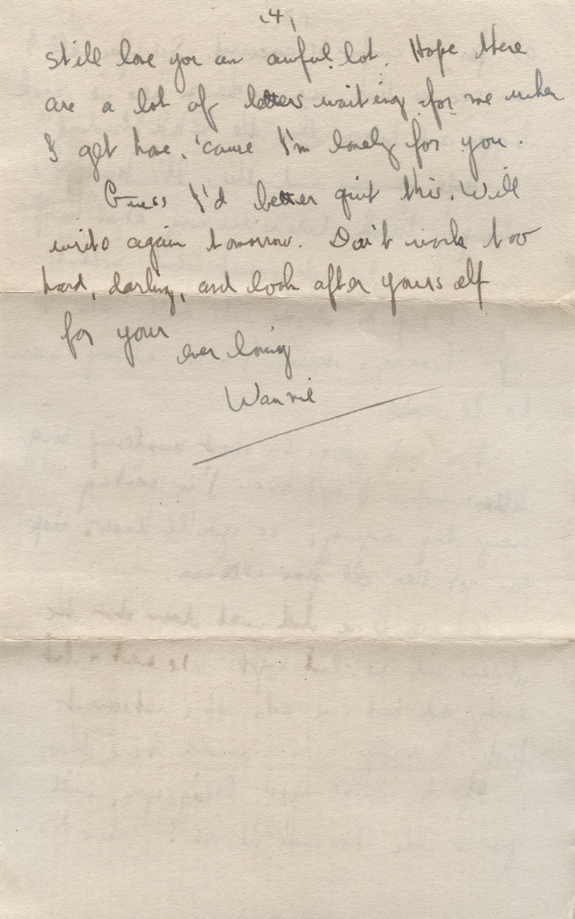 ,4,
still love you an awful lot. Hope there
are a lot of letters waiting for me when
I get home, 'cause I'm lonely for you.
Guess I'd better quit this. Will
write again tomorrow. Don't work too
hard, darling, and look after yourself
for your
ever loving